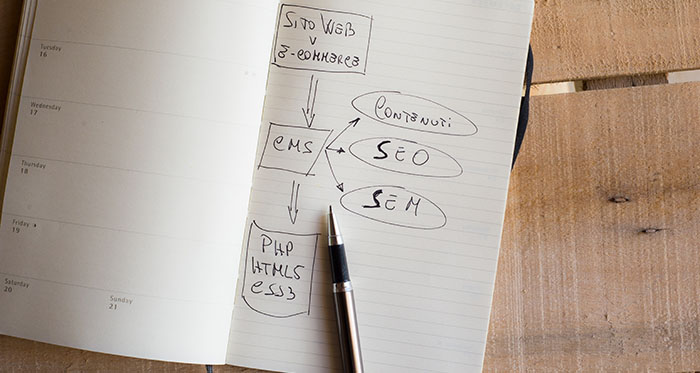 Tuesday
16
Wednesday
17
Thursday
18
Friday
19
Saturday
20
Sunday
21
SITO WEB
V
E-COMMERCE
CMS
CONTENUTI
SEO
SEM
PHP
HTML5
CSS3